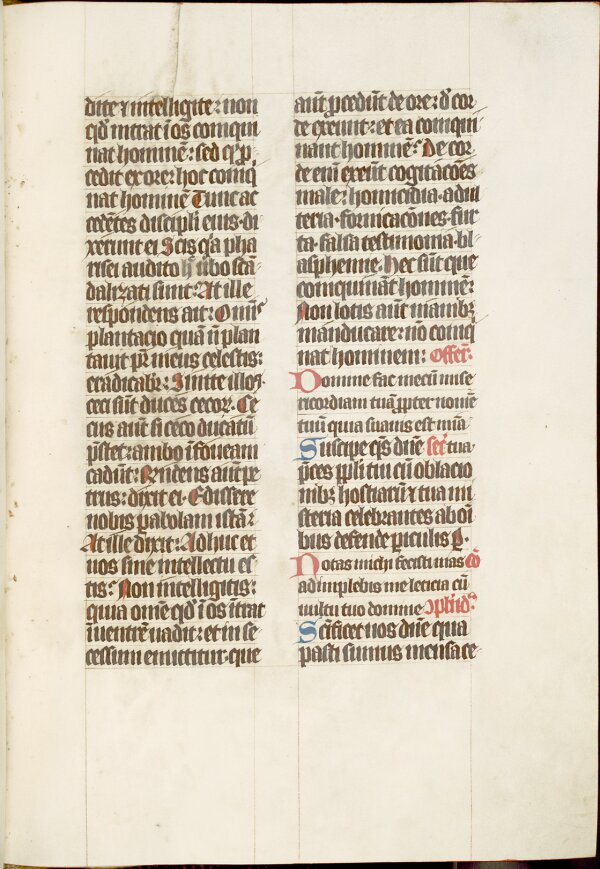 dite ⁊ intelligite: non
qđ intrat ī os coinqui
nat hominē: sed qđ p̄
cedit ex ore: hoc coinq
nat hominē Tunc ac
cedētes discipli eius di
xerunt ei Scis q̄a pha
risei audito ūbo scā
dalizati sunt: At ille
respondens ait: Om̄is
plantacio quā n̄ plan
tauit pr̄ meus celestis:
eradicabr̄: Sinite illos
ceci sūt duces cecoꝝ. Ce
cus aūt si ceco ducatū
p̄stet: ambo ī foueam
cadūt: R̄ndens aūt pe
trus: dixit ei. Edissere
nobis parabolam istā:
At ille dixit: Adhuc et
uos sine intellectu es
tis: Non intelligitis:
quia om̄e qđ ī os ītrat
ī uentrē uadit: et in se
cessum emittitur. que
aūt ꝓcedūt de ore: đ cor
de exeunt: et ea coinqui
nant hominē: De cor
de enī exeūt cogitacōes
male: homicidia. adul
teria. fornicacōnes. fur
ta. falsa testimonia. bl
asphemie. Hec sūt que
coinquināt hominē:
Non lotis aūt manibꝫ
manducare: nō coinq
nat hominem: Offert̄.
Domine fac mecū mise
ricordiam tuā ꝓpter nomē
tuū quia suauis est mīa
Suscipe qs dn̄e secr̄ tua
p̄ces ppl̄i tui cū oblacio
nibꝫ hostiarū ⁊ tua mi
steria celebrantes ab oī
bus defende piculis P.
Notas michi fecisti uias cō
adimplebis me leticia cū
uultu tuo domine ꝯplēđ.
Scīficet nos dn̄e qua
pasti sumus mensa ce-